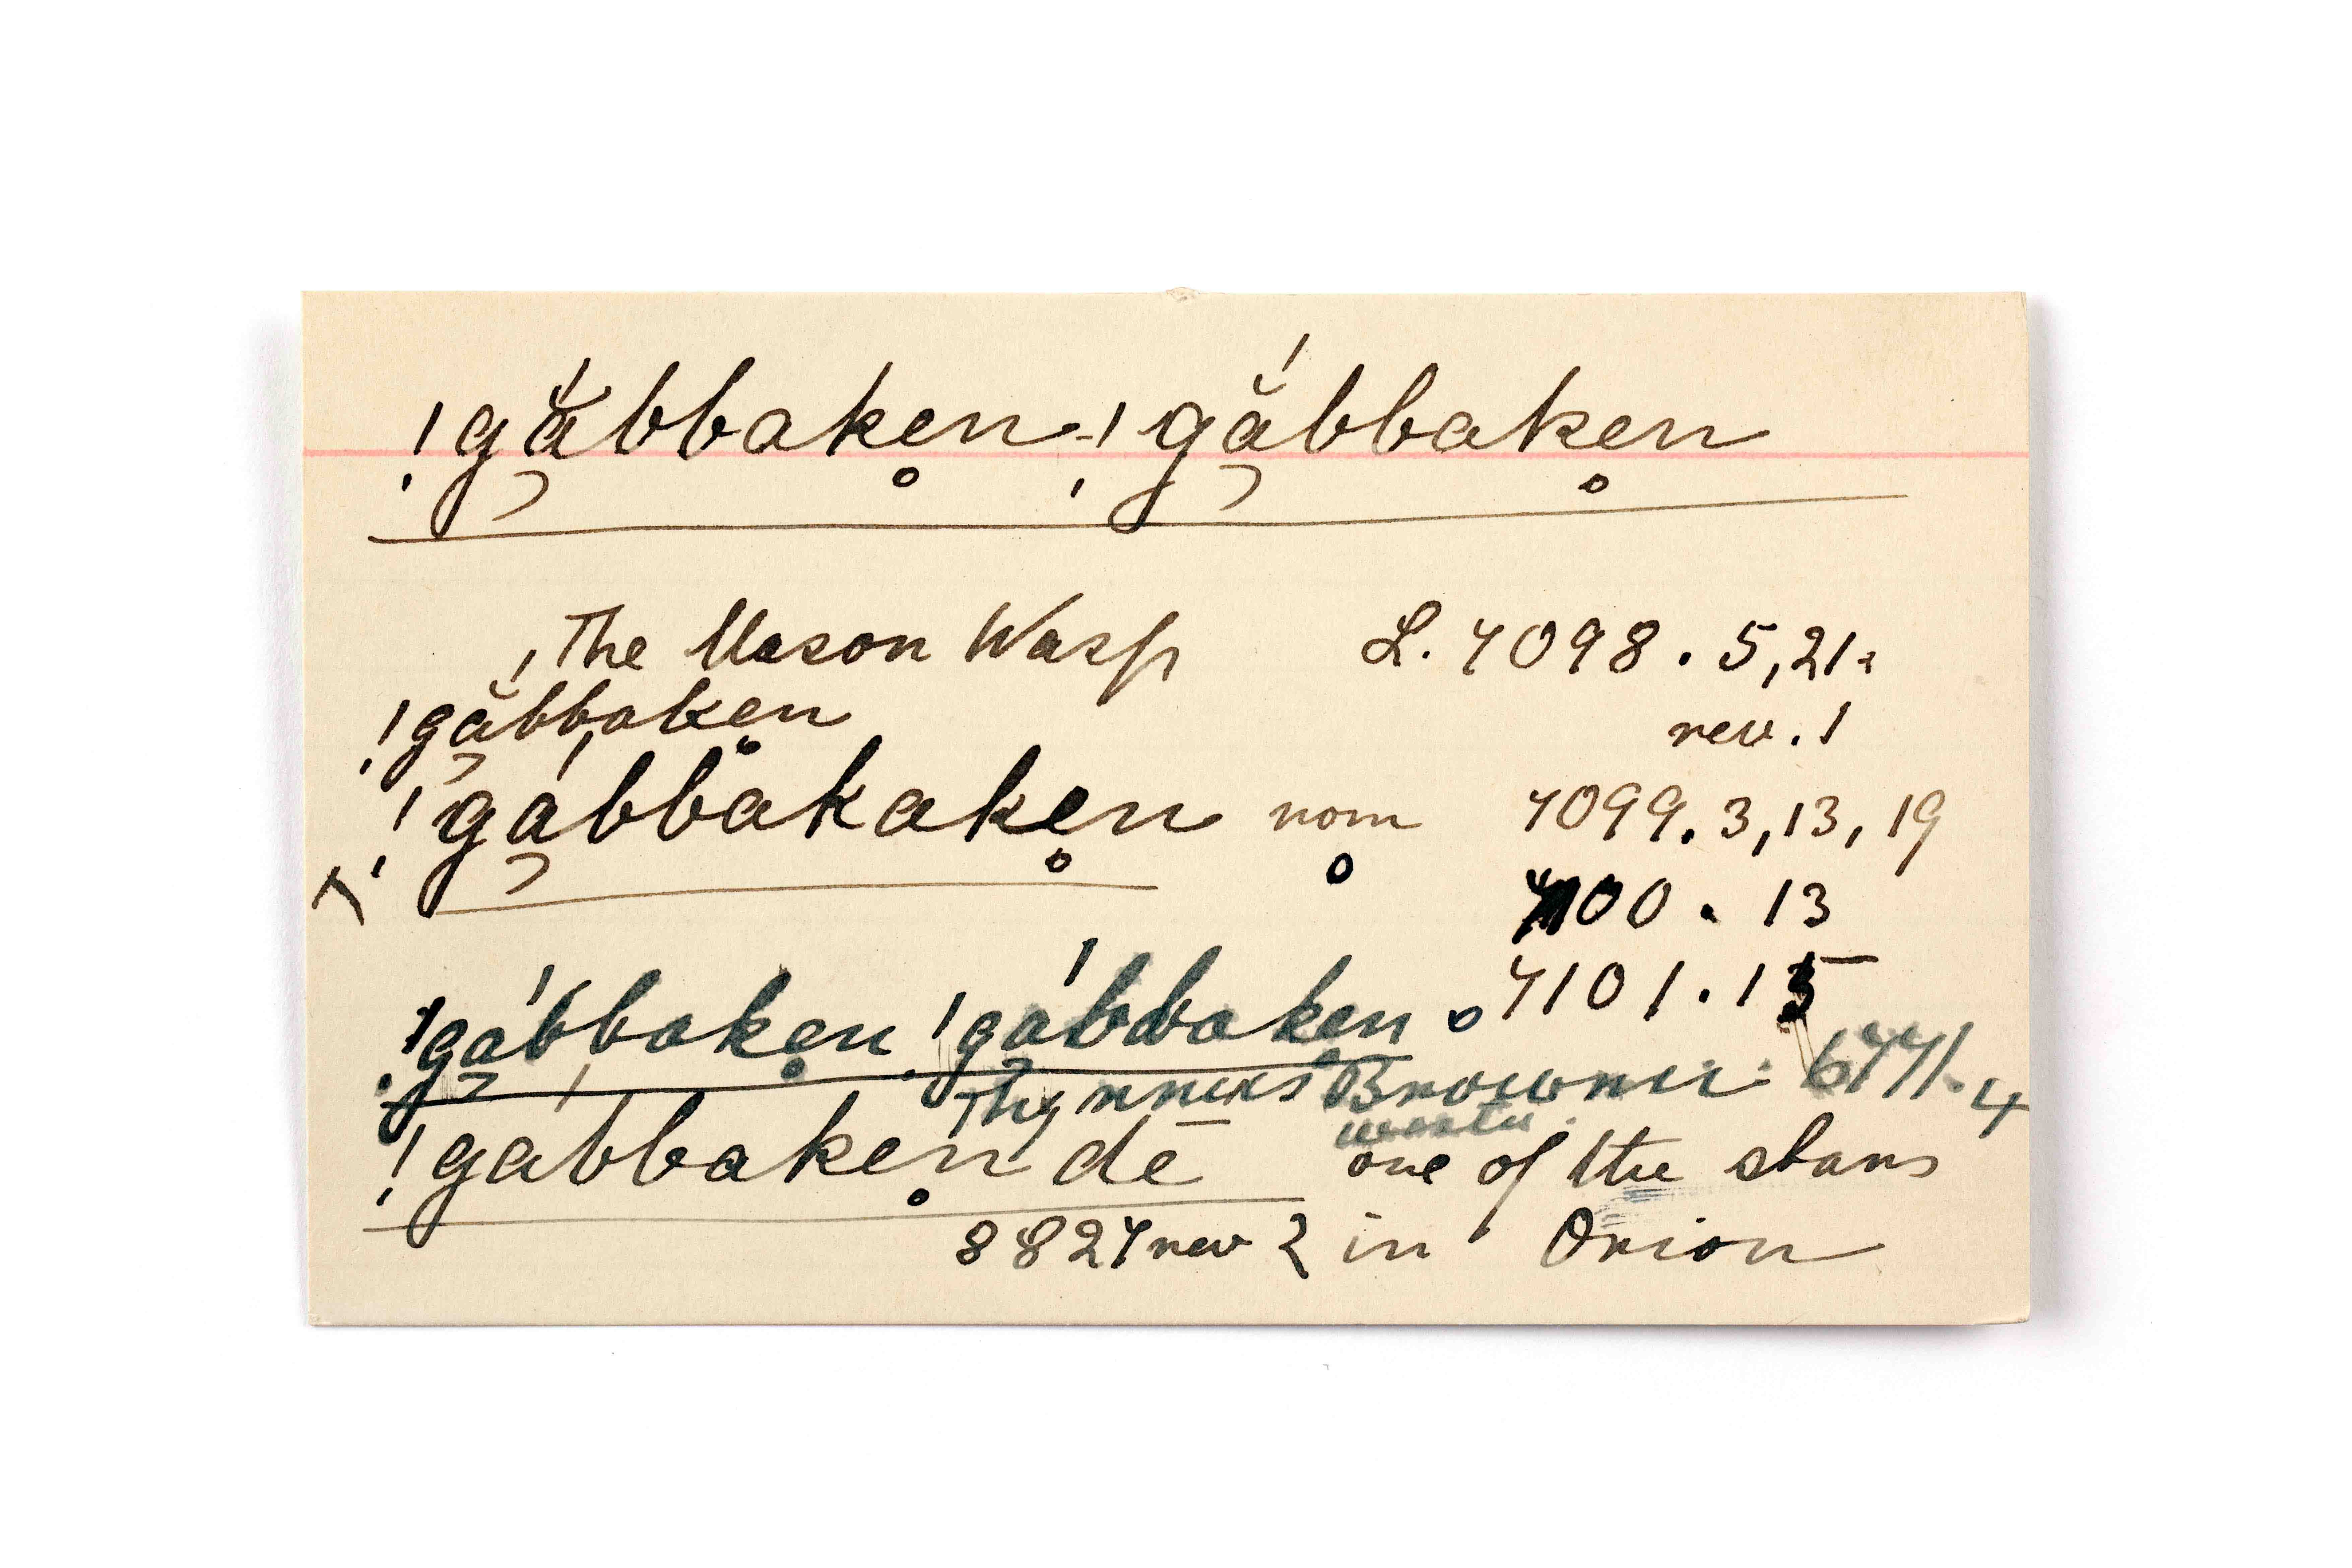 !gắbbaken-!gắbbaken
The Mason Wasp L. 4098. 5,21.
!gắbbaken rev. 1
!gábbakaken nom 4099. 3, 13, 19
4100. 13
!gábbaken !gábbaken. 4101. 15
Thynnus Brownii
!gábbaken dē one of the stars
8824 rev 2 in Orion